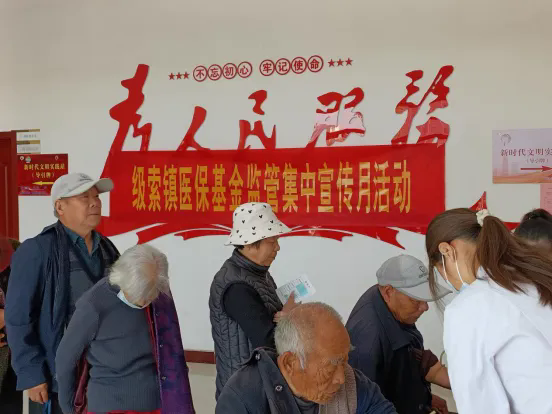 不忘初心 牢记使命
为人民服务
级索镇医保基金监管集中宣传月活动
新时代文明实践巷
(导引牌)
新时代文明实
(导引牌)